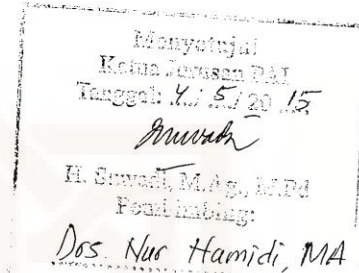 Menyetujui
Ketua Jurusan PAI
Tanggal: 4 / 5 / 20 15
H. Suwadi, M.Ag., M.Pd
Pembimbing:
Drs. Nur Hamidi, MA